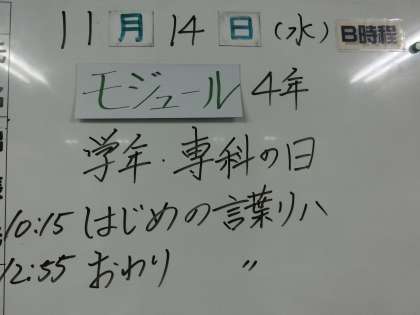 11月14日(水) B時程
モジュール 4年
学年・専科の日
10:15 はじめの言葉リハ
12:55 おわり 〃